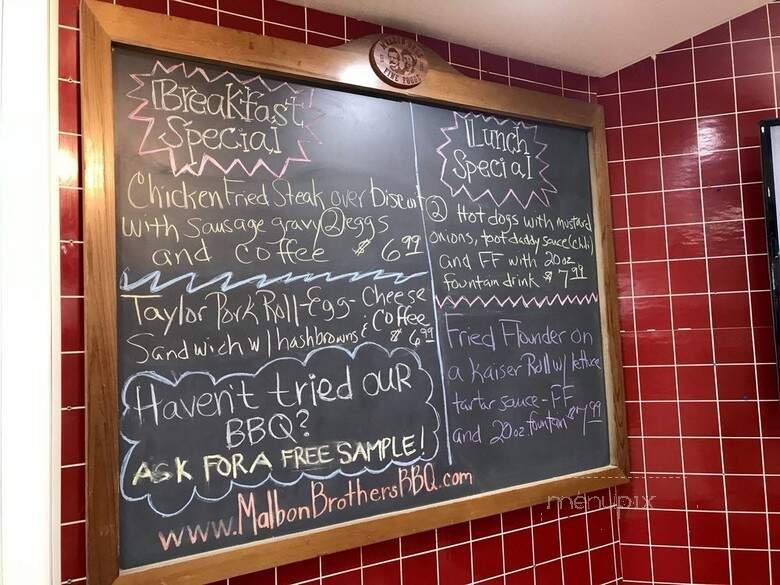 FINE FOODS
Breakfast
Special
Chicken Fried Steak over biscuit
with sausage gravy 2 eggs
and coffee $ 6.99
Taylor Pork Roll-Egg-Cheese
Sandwich w/ hashbrowns & Coffee $ 6.99
Haven't tried our
BBQ?
ASK FOR A FREE SAMPLE!
www.MalbonBrothersBBQ.com
Lunch
Special
2 Hot dogs with mustard
onions, toot daddy sauce (chili)
and FF with 20oz
fountain drink $ 7.99
Fried Flounder on
a Kaiser Roll w/ lettuce
tartar sauce - FF
and 20oz. fountain $ 7.99
menupix